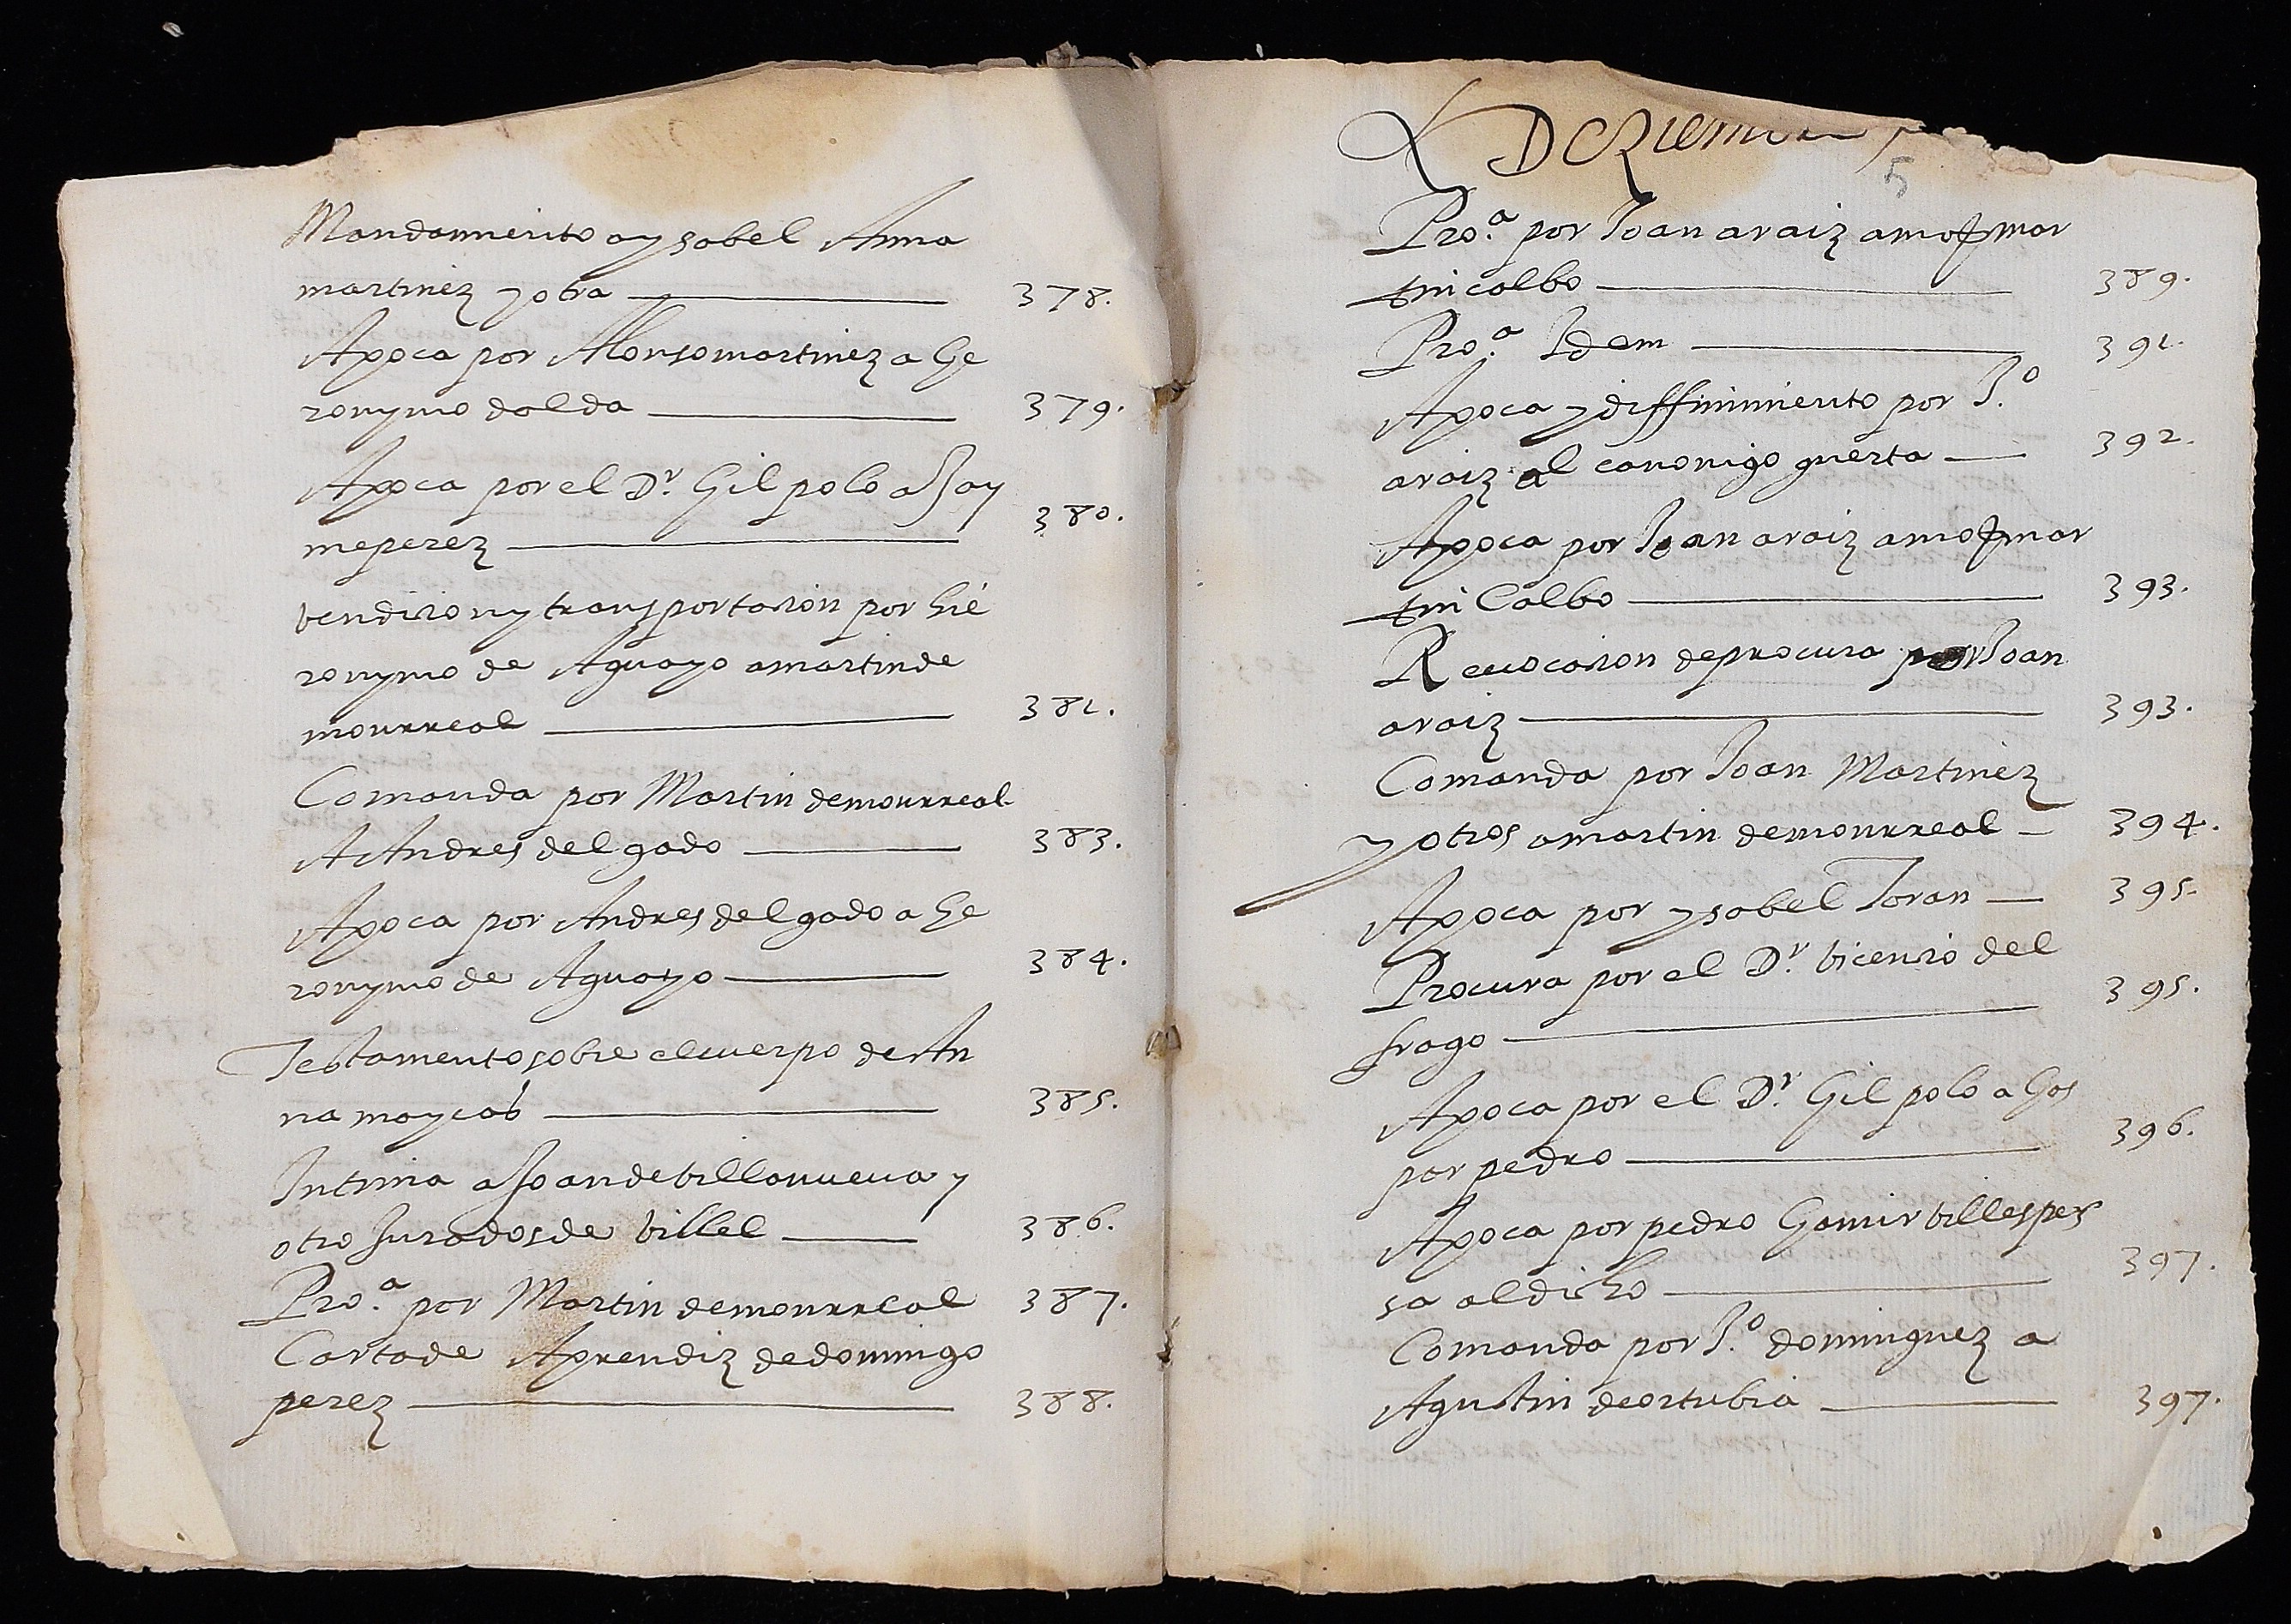 Mandamiento a ysabel Anna
martinez y otra 378.
Apoca por Alonso martinez a Ge
ronymo dolda 379.
Apoca por el Dr. Gil polo a Jay
me perez 380.
vendicion y transportacion por hie
ronymo de Aguayo a martin de
monrreal 381.
Comanda por Martin de monrreal
A Andres delgado 383.
Apoca por Andres delgado a Ge
ronymo de Aguayo 384.
Testamento sobre el cuerpo de An
na maycas 385.
Intima a Joan de billanueva y
otro Jurados de billel 386.
Pro.ª por Martin de monrreal 387.
Carta de Aprendiz de domingo
perez 388.
Deziembre
5
Pro.ª por Joan araiz a mosen mar
tin calbo 389.
Pro.ª Idem 391.
Apoca y diffinimiento por J.º
araiz al canonigo guerta 392.
Apoca por Joan araiz a mosen mar
tin Calbo 393.
Revocacion de procura por Joan
araiz 393.
Comanda por Joan Martinez
y otros a martin de monrreal 394.
Apoca por ysabel Joran 395.
Procura por el Dr. bicencio del
frago 395.
Apoca por el Dr. Gil polo a Gas
par pedro 396.
Apoca por pedro Gamir billespes
sa al dicho 397.
Comanda por J.º dominguez a
Agustin de ortubia 397.